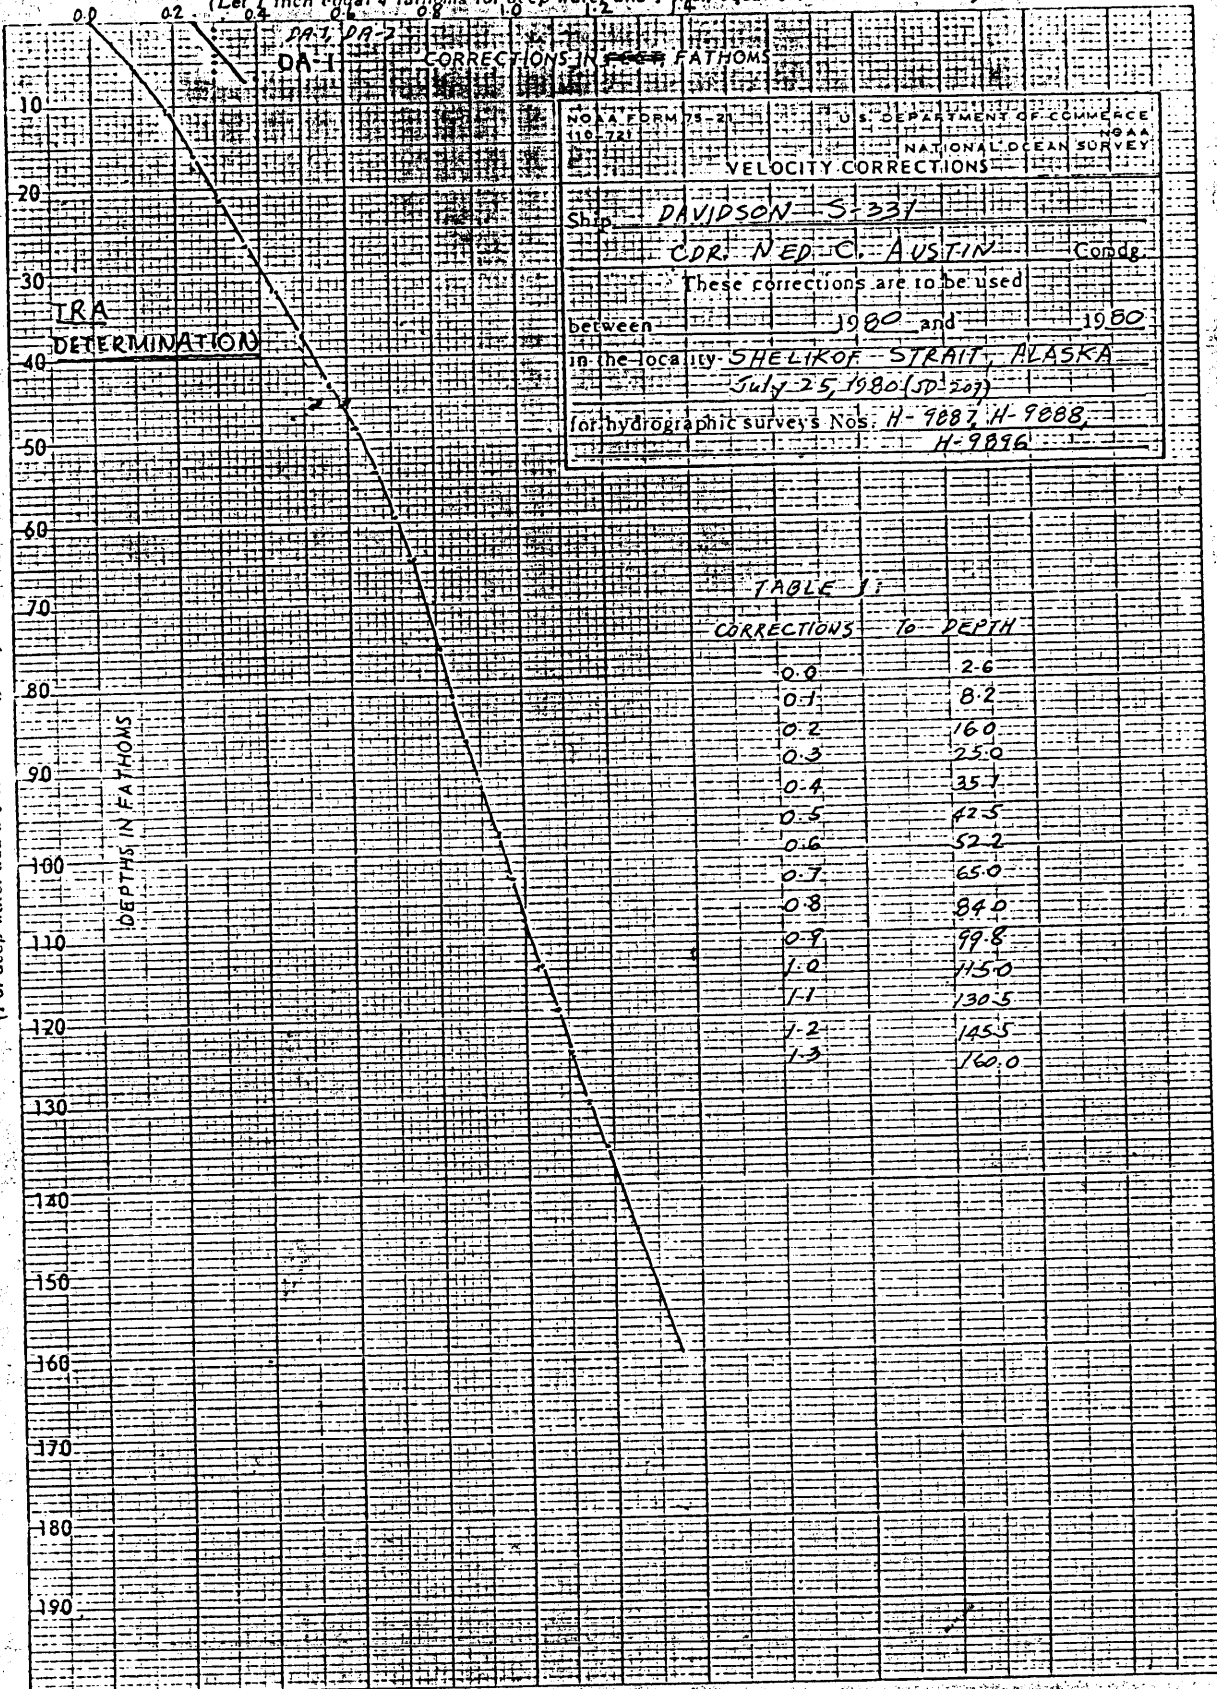 0.0 0.2 0.4 0.6 0.8 1.0 1.2 1.4
DA-1, DA-2
DA-1 CORRECTIONS IN FEET, FATHOMS
NOAA FORM 75-21 U.S. DEPARTMENT OF COMMERCE
(10-72) NOAA
NATIONAL OCEAN SURVEY
VELOCITY CORRECTIONS
Ship DAVIDSON S-331
CDR. NED C. AUSTIN Comdg.
These corrections are to be used
between 1980 and 1980
in the locality SHELIKOF STRAIT, ALASKA
July 25, 1980 (JD 207)
for hydrographic surveys Nos. H-9887, H-9888,
H-9896
TRA
DETERMINATION
10
20
30
40
50
60
70
80
90
100
110
120
130
140
150
160
170
180
190
DEPTHS IN FATHOMS
TABLE 1:
CORRECTIONS To DEPTH
0.0 2.6
0.1 8.2
0.2 16.0
0.3 25.0
0.4 35.1
0.5 42.5
0.6 52.2
0.7 65.0
0.8 84.0
0.9 99.8
1.0 115.0
1.1 130.5
1.2 145.5
1.3 160.0